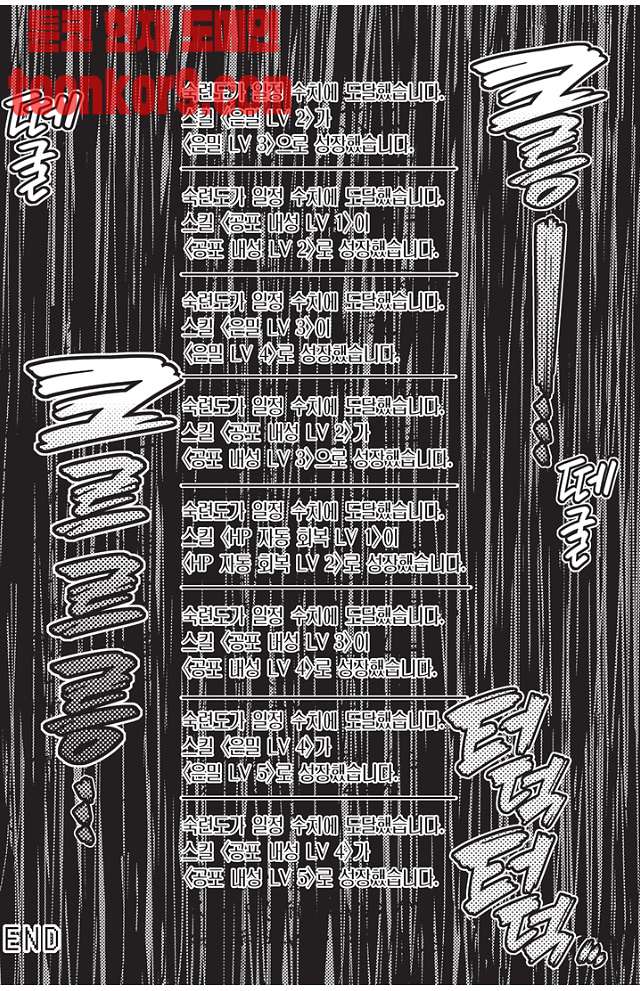 툰코 현재 도메인
toonkor9.com
숙련도가 일정 수치에 도달했습니다.
스킬 <은밀 LV 2>가
<은밀 LV 3>으로 성장했습니다.
숙련도가 일정 수치에 도달했습니다.
스킬 <공포 내성 LV 1>이
<공포 내성 LV 2>로 성장했습니다.
숙련도가 일정 수치에 도달했습니다.
스킬 <은밀 LV 3>이
<은밀 LV 4>로 성장했습니다.
숙련도가 일정 수치에 도달했습니다.
스킬 <공포 내성 LV 2>가
<공포 내성 LV 3>으로 성장했습니다.
숙련도가 일정 수치에 도달했습니다.
스킬 <HP 자동 회복 LV 1>이
<HP 자동 회복 LV 2>로 성장했습니다.
숙련도가 일정 수치에 도달했습니다.
스킬 <공포 내성 LV 3>이
<공포 내성 LV 4>로 성장했습니다.
숙련도가 일정 수치에 도달했습니다.
스킬 <은밀 LV 4>가
<은밀 LV 5>로 성장했습니다.
숙련도가 일정 수치에 도달했습니다.
스킬 <공포 내성 LV 4>가
<공포 내성 LV 5>로 성장했습니다.
떼굴
크르르르릉...
크릉ㅡ...
떼굴
터덕
터덕...
END